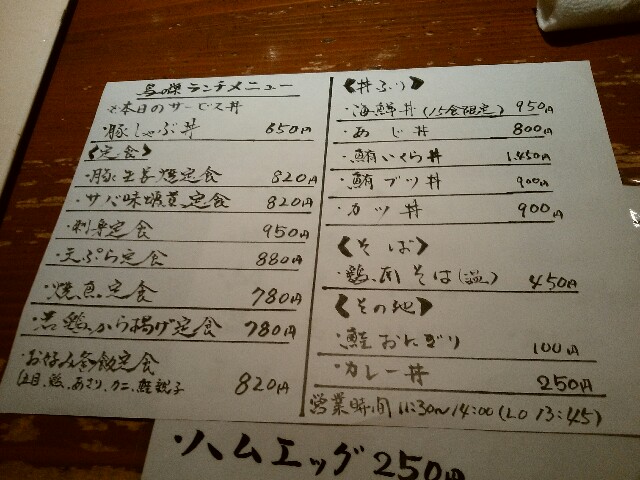 ランチメニュー
※本日のサービス丼
・豚しゃぶ丼 650円
<定食>
・豚生姜焼定食 820円
・サバ味噌煮定食 820円
・刺身定食 950円
・天ぷら定食 880円
・焼魚定食 780円
・若鶏から揚げ定食 780円
・お好み釜飯定食 820円
<丼ぶり>
・海鮮丼(15食限定) 950円
・あじ丼 800円
・鮪いくら丼 1,450円
・鮪ブツ丼 900円
・カツ丼 900円
<そば>
・鶏南そば(温) 450円
<その他>
・鮭おにぎり 100円
・カレー丼 250円
営業時間 11:30~14:00(LO 13:45)
・ハムエッグ 250円